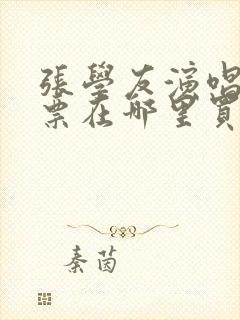 張學友演唱
票在哪里買
秦茵